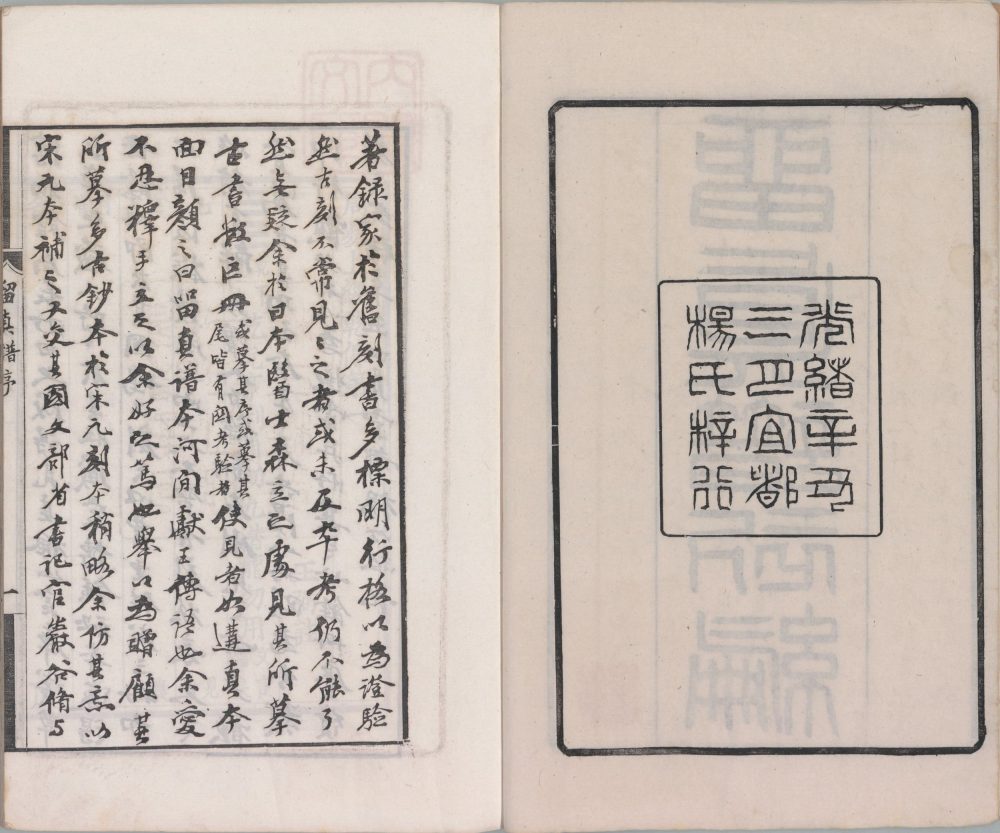 光緒辛丑
三月宜都
楊氏梓行
著錄家於舊刻書多標明行格以為證驗
然古刻不常見〻之者或未及卒考仍不能了
然無疑余於日本醫士森立之處見其所摹
古書數巨冊或摹其序或摹其尾皆有關考驗者使見者如遘真本
面目顏之曰留真譜本河間獻王傳語也余愛
不忍釋手立之以余好之篤也舉以為贈顧其
所摹多古鈔本於宋元刻本稍略余仿其意以
宋元本補之又交其國文部省書記官巖谷脩与
留真譜序
一